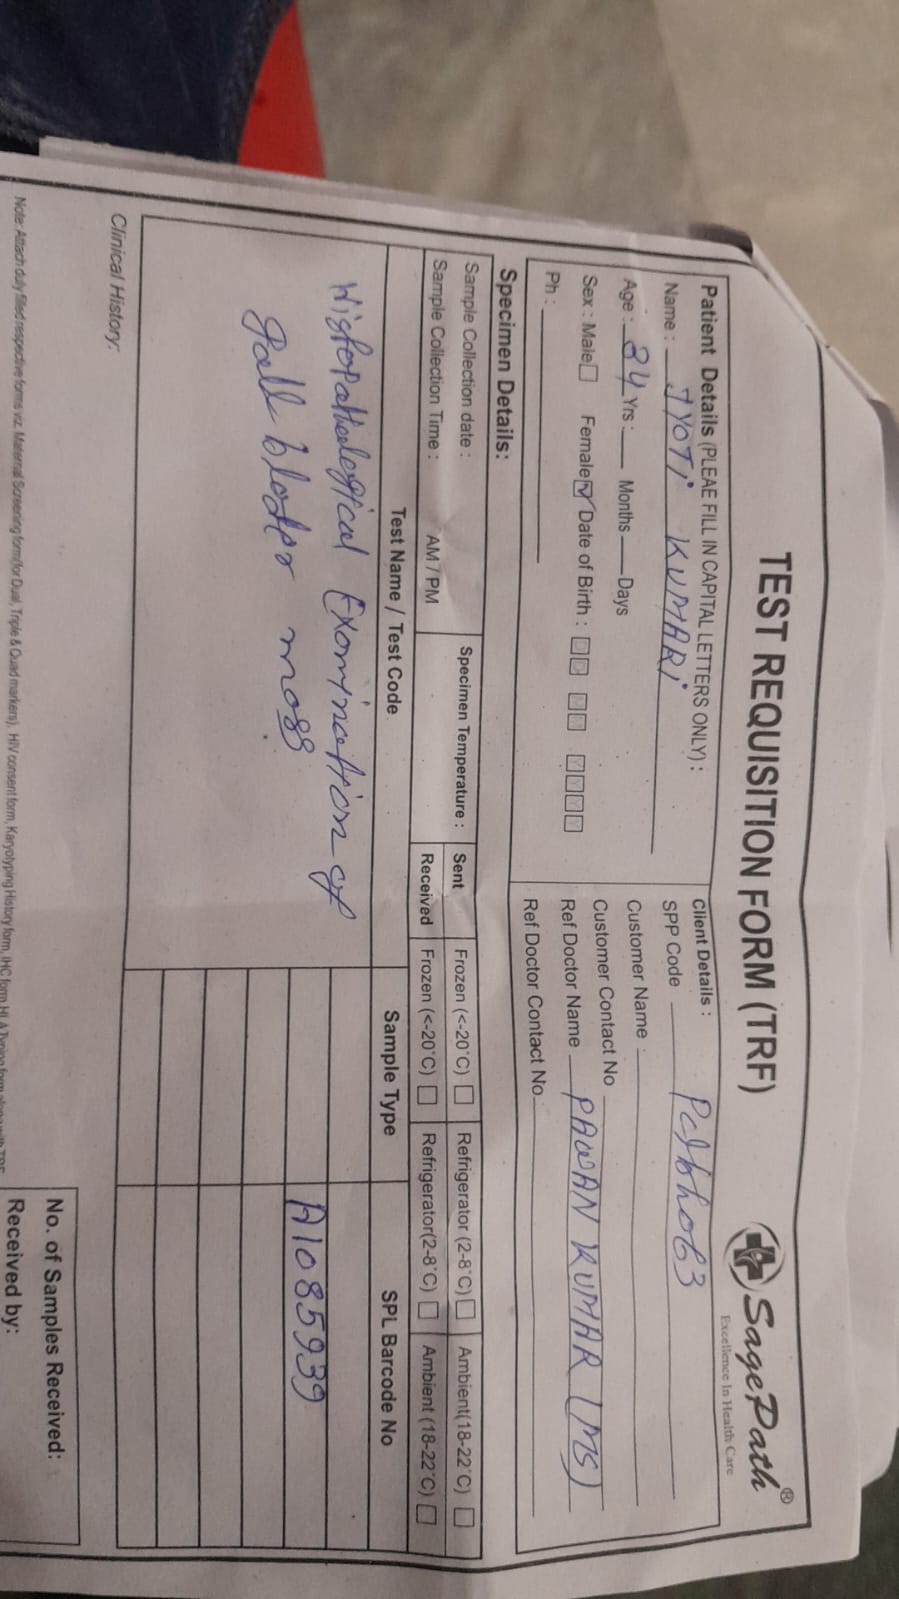 TEST REQUISITION FORM (TRF)
SagePath®
Excellence In Health Care
Patient Details (PLEAE FILL IN CAPITAL LETTERS ONLY) :
Name : JYOTI KUMARI
Age : 34 Yrs : Months Days
Sex : Male Female Date of Birth : D D M M Y Y Y Y
Ph :
Client Details :
SPP Code
Customer Name :
Customer Contact No
Ref Doctor Name PAWAN KUMAR (MS)
Ref Doctor Contact No
Specimen Details:
Sample Collection date :
Sample Collection Time : AM / PM
Specimen Temperature :
Sent Frozen (<-20°C) Refrigerator (2-8°C) Ambient(18-22°C)
Received Frozen (<-20°C) Refrigerator(2-8°C) Ambient (18-22°C)
Test Name / Test Code Sample Type SPL Barcode No
Histopathological Examination of
gall bladder mass
A1085939
Clinical History:
No. of Samples Received:
Received by:
Note: Attach duly filled respective forms viz. Maternal Screening form(for Dual, Triple & Quad markers), HIV consent form, Karyotyping History form, IHC form, HLA Typing form along with TRF